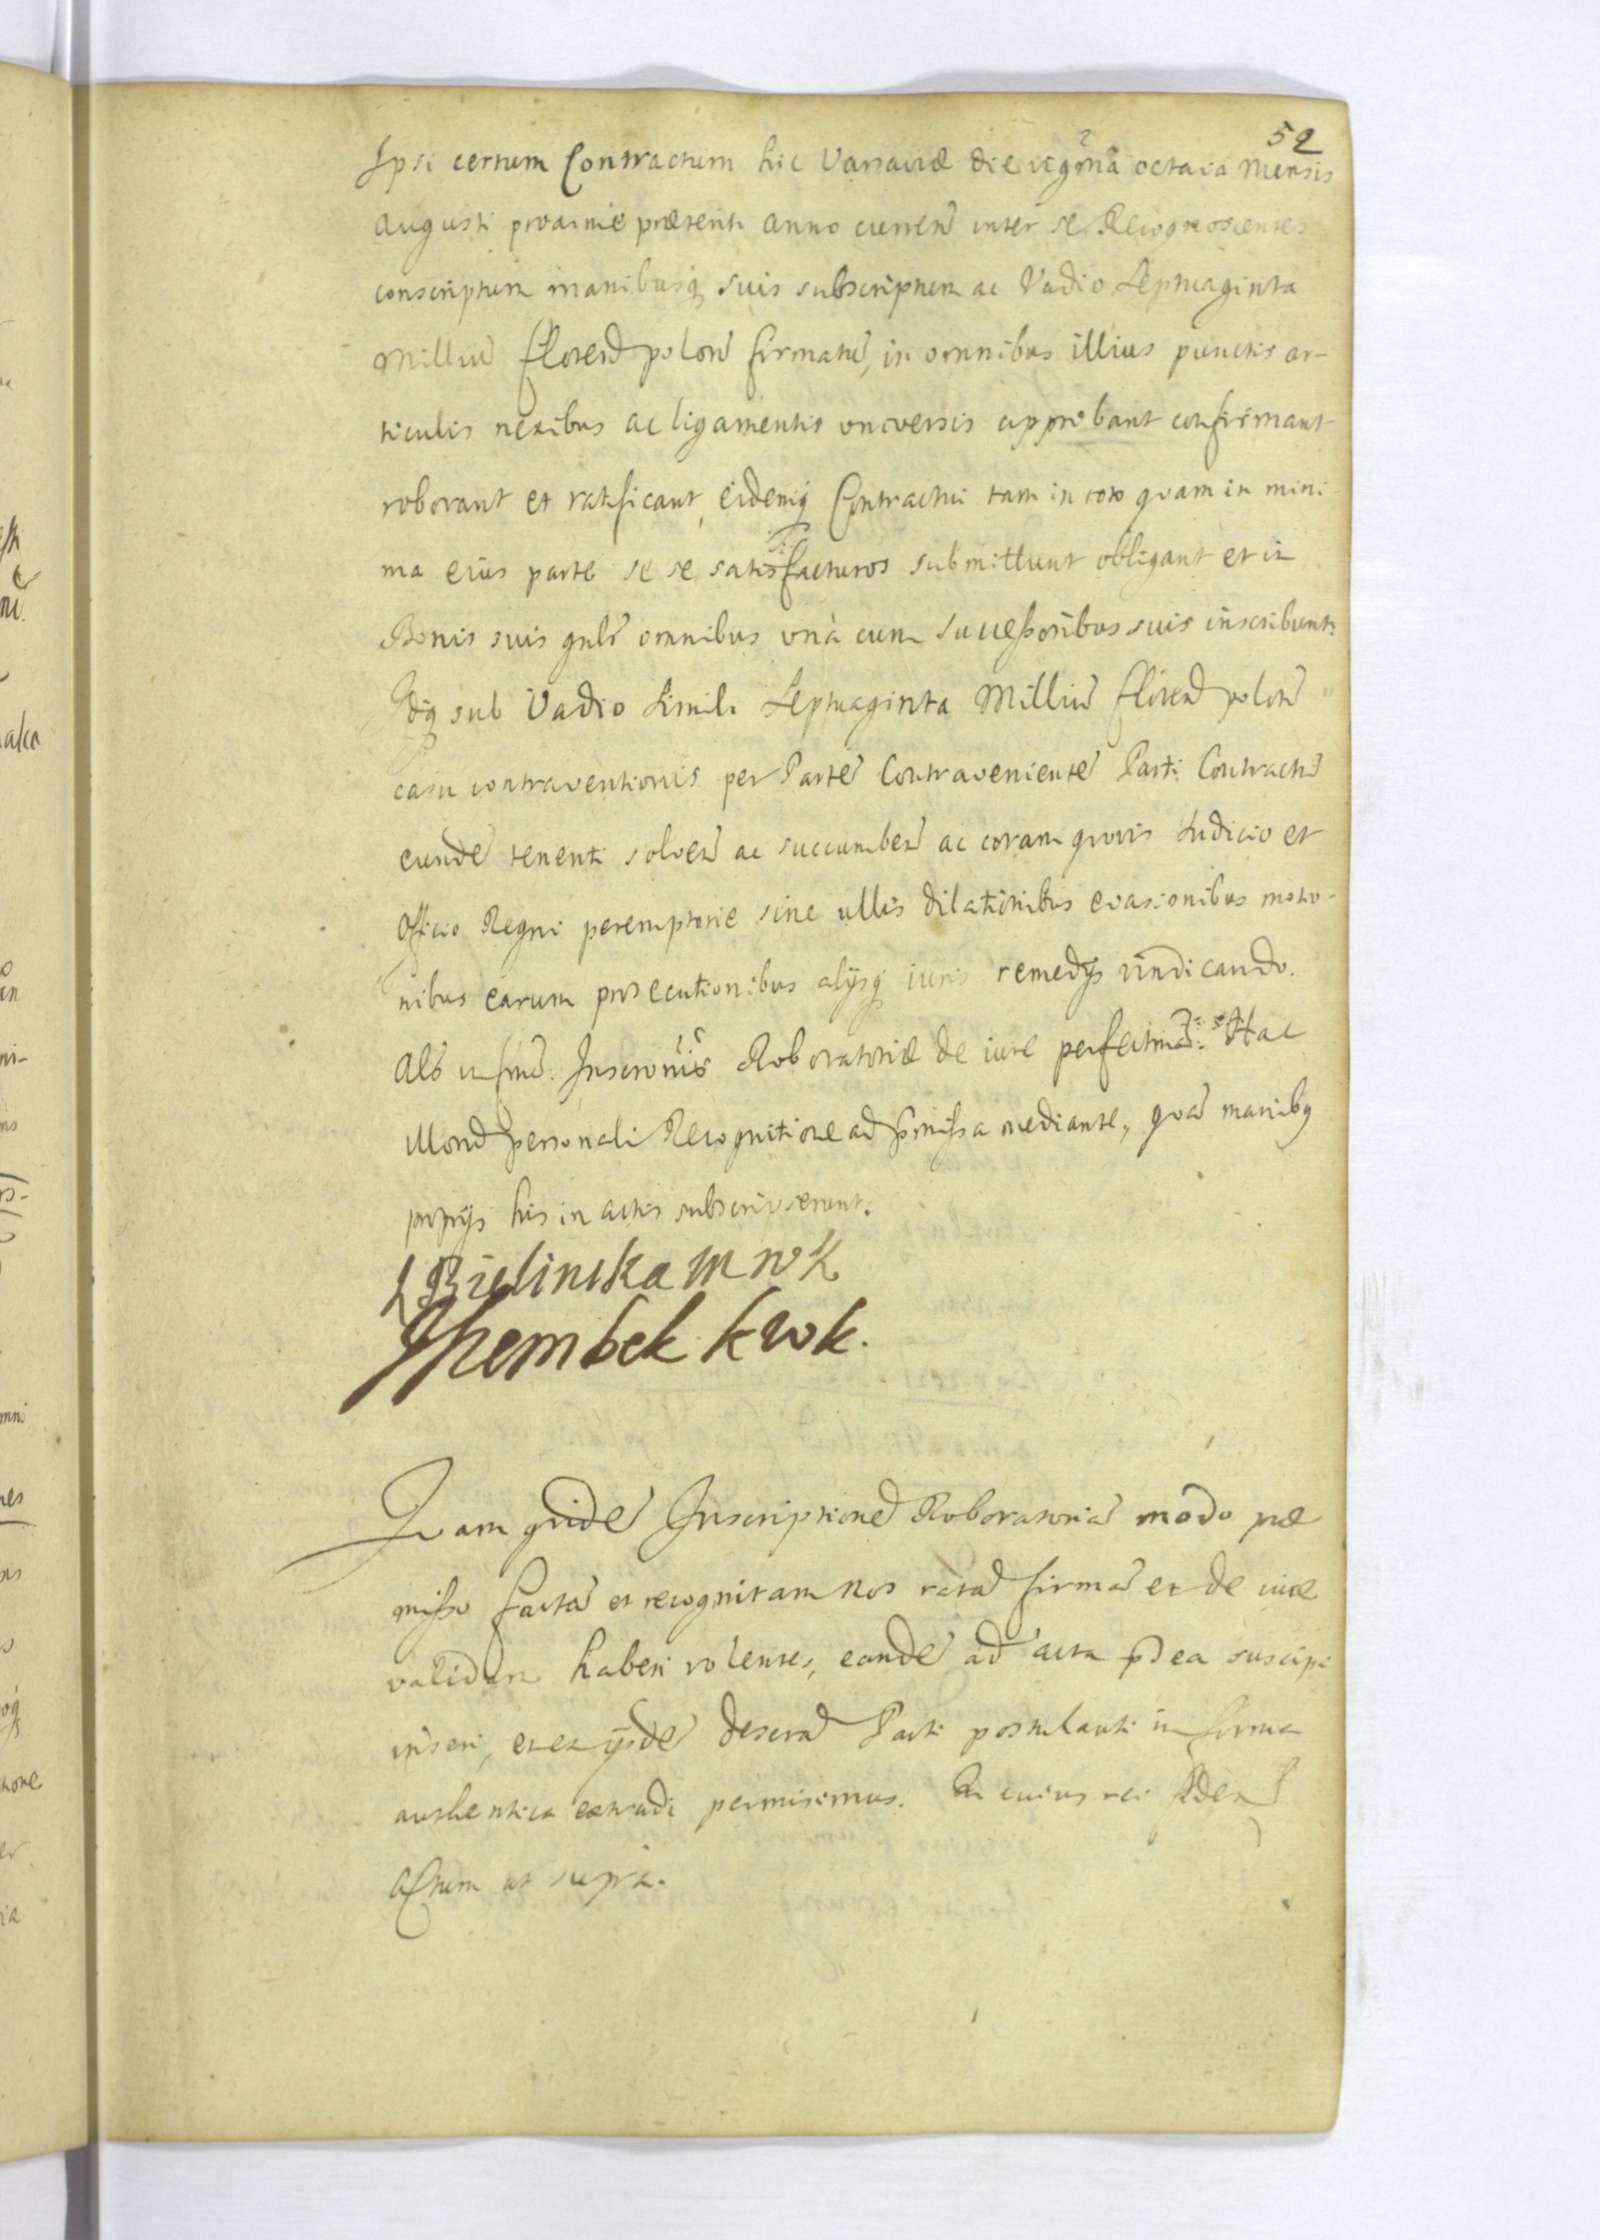 52
Ipsi certum Contractum hic Varsaviæ die vigmã octava Mensis
Augusti proxime præteriti Anno curreñ inter se Recognoscentes
conscriptum manibusq suis subscriptum ac Vadio Septuaginta
Milliũ floreñ poloñ firmatũ, in omnibus illius punctis ar-
ticulis nexibus ac ligamentis universis approbant confirmant
roborant et ratificant, eidemq Contractui tam in toto quam in mini
ma eius parte se se satisfacturos submittunt obligant et in
Bonis suis gnlr omnibus unà cum Successoribus suis inscribunt.
Idq sub Vadio simili Septuaginta Milliũ floreñ poloñ
casu contraventionis per Partẽ Contravenientẽ Parti Contractũ
eundẽ tenenti solveñ ac succumbeñ ac coram quovis Iudicio et
Officio Regni peremptorie sine ullis dilationibus evasionibus motio-
nibus earum prosecutionibus alijsq iuris remedijs vindicando.
Roboratoriæ de iure Hac
personali Recognitione ad pmissa mediante, quã manibq
proprijs his in actis subscripserunt.
L Bielinska M W K
JSzembek kwk.
Quam quidẽ Inscriptionẽ Roboratoriã modo præ
misso factã et recognitam nos ratã firmã et de iure
validam haberi volentes, eandẽ ad acta pñtea suscipi
inseri, et ex ijsdẽ Parti postulanti in forma
authentica extradi permisimus. In cuius rei fidem
Actum ut supra.